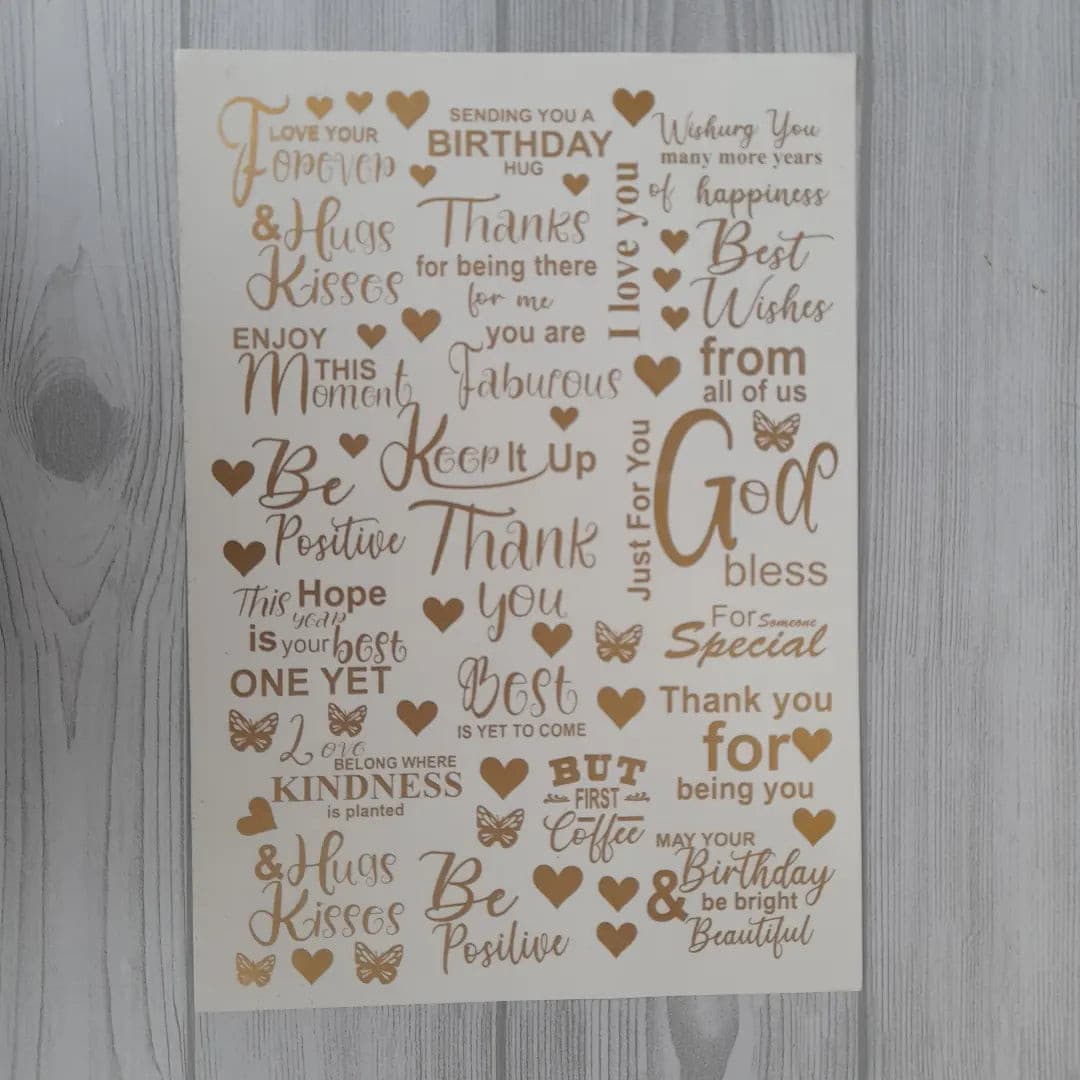 LOVE YOUR
Forever
SENDING YOU A
BIRTHDAY
HUG
Wishurg You
many more years
of happiness
I love you
&Hugs
Kisses
Thanks
for being there
for me
Best
Wishes
from
all of us
ENJOY
THIS
Moment
you are
Faburous
Be
Positive
Keep It Up
Thank
you
Just For You
God
bless
This Hope
year
is your best
ONE YET
For Someone
Special
Best
IS YET TO COME
Thank you
for
being you
Love
BELONG WHERE
KINDNESS
is planted
BUT
FIRST
Coffee
&Hugs
Kisses
Be
Posilive
MAY YOUR
Birthday
& be bright
Beautiful